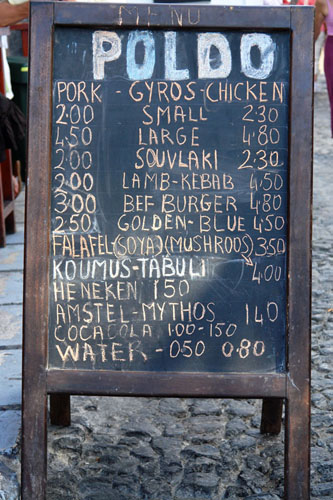 MENU
POLDO
PORK - GYROS - CHICKEN
2.00 SMALL 2.30
4.50 LARGE 4.80
2.00 SOUVLAKI 2.30
2.00 LAMB-KEBAB 4.50
3.00 BEF BURGER 4.80
2.50 GOLDEN-BLUE 4.50
FALAFEL(SOYA)(MUSHROOS) 3.50
KOUMUS-TABULI 4.00
HENEKEN 1 50
AMSTEL-MYTHOS 1.40
COCACOLA 1.00-1.50
WATER - 0.50 0.80